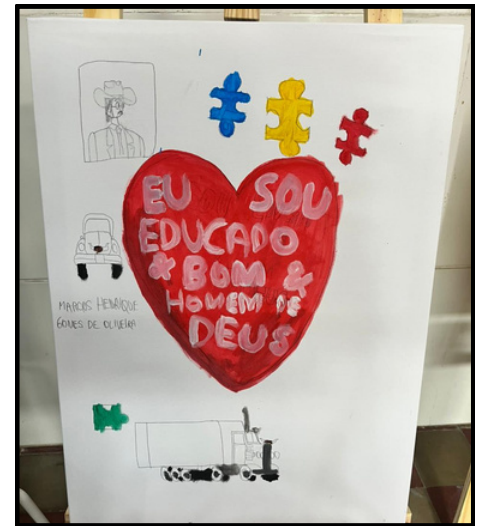 EU SOU
EDUCADO
& BOM &
HOMEM DE
DEUS
MARCOS HENRIQUE
GOMES DE OLIVEIRA